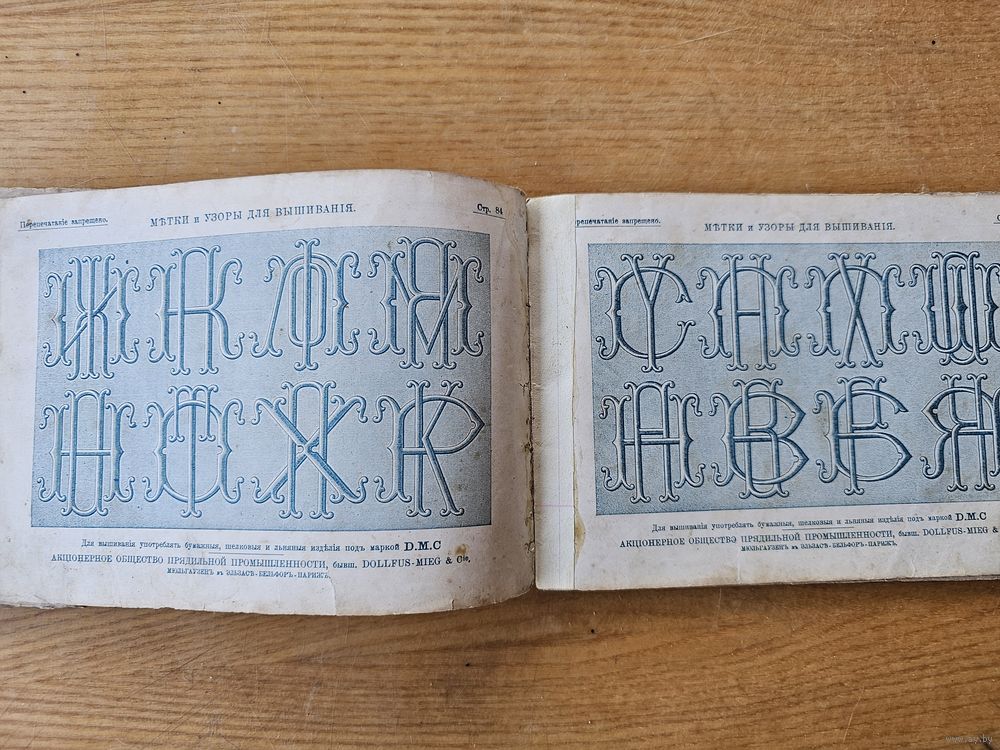 Перепечатаніе запрещено.
МѢТКИ и УЗОРЫ ДЛЯ ВЫШИВАНІЯ.
Стр. 84
Для вышиванія употреблять бумажныя, шелковыя и льняныя издѣлія подъ маркой D.M.C
АКЦІОНЕРНОЕ ОБЩЕСТВО ПРЯДИЛЬНОЙ ПРОМЫШЛЕННОСТИ, бывш. DOLLFUS-MIEG & Cie,
МЮЛЬГАУЗЕНЪ въ ЭЛЬЗАСѢ-БЕЛЬФОРЪ-ПАРИЖЪ.
репечатаніе запрещено.
МѢТКИ и УЗОРЫ ДЛЯ ВЫШИВАНІЯ.
Для вышиванія употреблять бумажныя, шелковыя и льняныя издѣлія подъ маркой D.M.C
АКЦІОНЕРНОЕ ОБЩЕСТВО ПРЯДИЛЬНОЙ ПРОМЫШЛЕННОСТИ, бывш. DOLLFUS-MIEG &
МЮЛЬГАУЗЕНЪ въ ЭЛЬЗАСѢ-БЕЛЬФОРЪ-ПАРИЖЪ.
www.ay.by